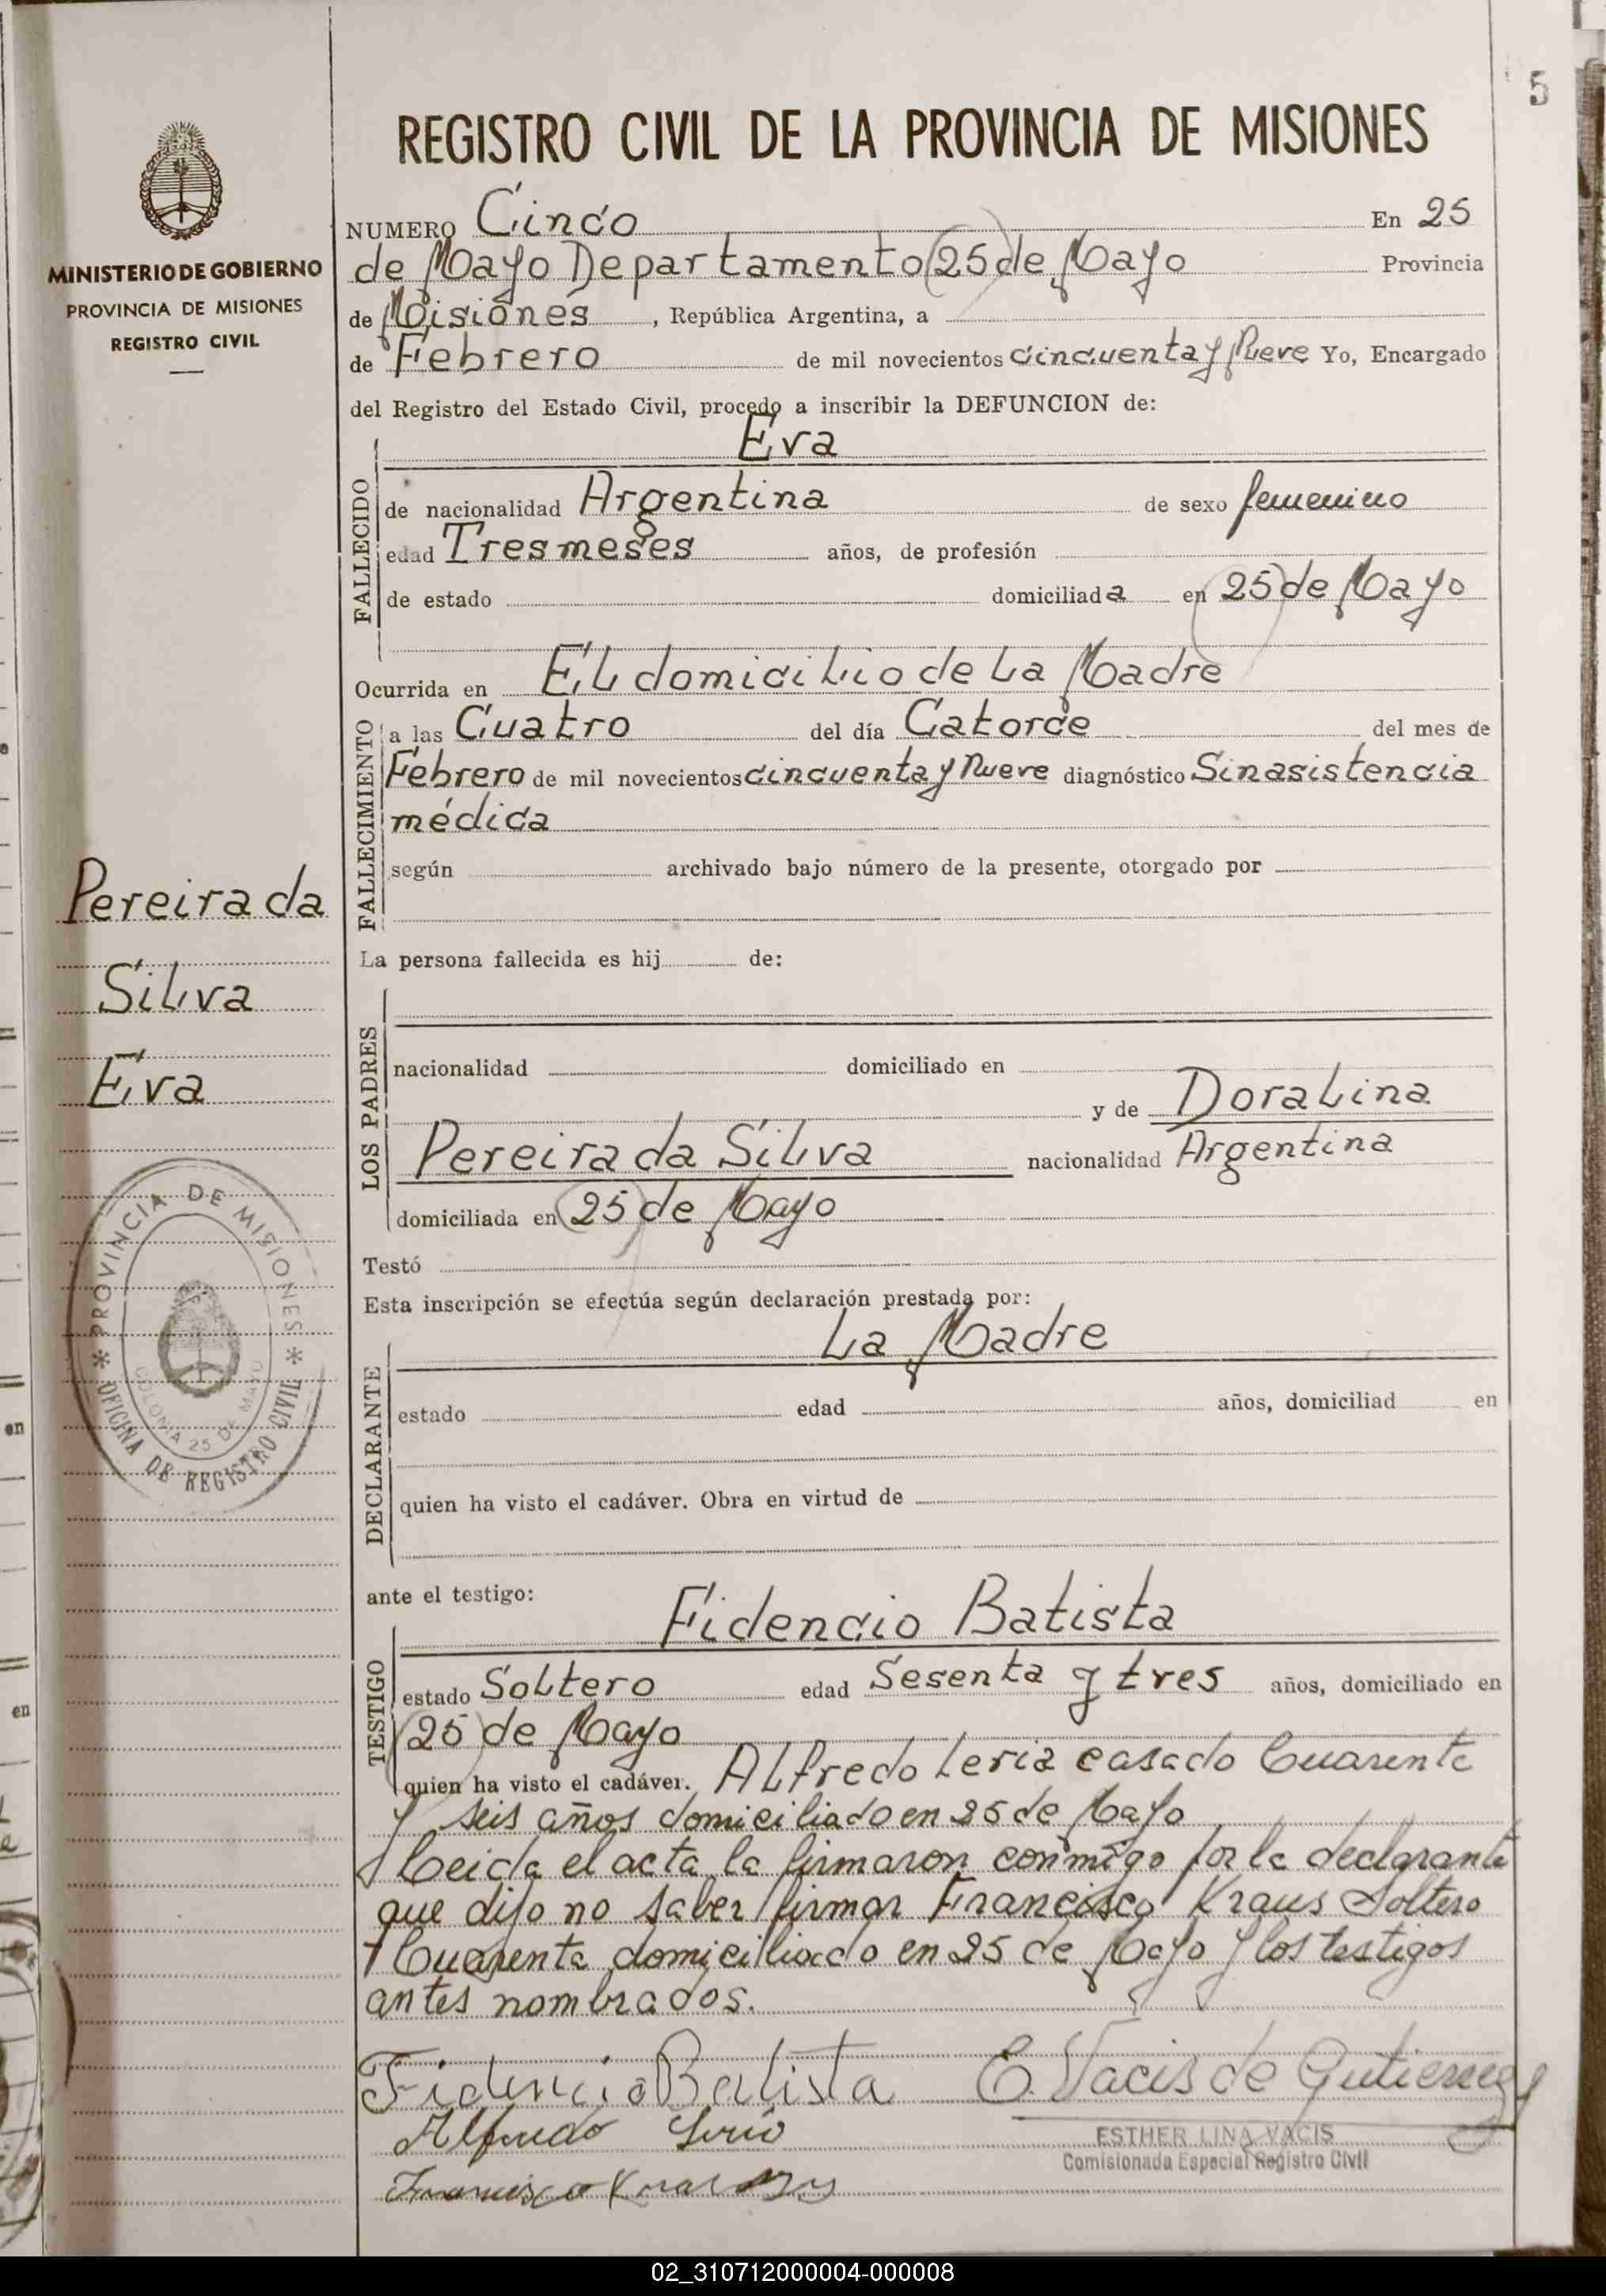 5
REGISTRO CIVIL DE LA PROVINCIA DE MISIONES
MINISTERIO DE GOBIERNO
PROVINCIA DE MISIONES
REGISTRO CIVIL
NUMERO Cinco En 25
de Mayo Departamento 25 de Mayo Provincia
de Misiones, República Argentina, a
de Febrero de mil novecientos cincuenta y Nueve Yo, Encargado
del Registro del Estado Civil, procedo a inscribir la DEFUNCION de:
Eva
FALLECIDO
de nacionalidad Argentina de sexo femenino
edad Tres meses años, de profesión
de estado domiciliada en 25 de Mayo
Ocurrida en El domicilio de La Madre
FALLECIMIENTO
a las Cuatro del día Catorce del mes de
Febrero de mil novecientos cincuenta y Nueve diagnóstico Sin asistencia
médica
según archivado bajo número de la presente, otorgado por
Pereira da
Silva
Eva
La persona fallecida es hij de:
LOS PADRES
nacionalidad domiciliado en
y de Doralina
Pereira da Silva nacionalidad Argentina
domiciliada en 25 de Mayo
PROVINCIA DE MISIONES
COLONIA 25 DE MAYO
OFICINA DE REGISTRO CIVIL
Testó
Esta inscripción se efectúa según declaración prestada por:
La Madre
DECLARANTE
estado edad años, domiciliad en
quien ha visto el cadáver. Obra en virtud de
ante el testigo:
Fidencio Batista
TESTIGO
estado Soltero edad Sesenta y tres años, domiciliado en
25 de Mayo
quien ha visto el cadáver. Alfredo Leria casado Cuarenta
y seis años domiciliado en 25 de Mayo
Leida el acta la firmaron conmigo por la declarante
que dijo no saber firmar Francisco Kraus Soltero
Cuarenta domiciliado en 25 de Mayo y los testigos
antes nombrados.
Fidencio Batista E. Vacis de Gutierrez
Alfredo
ESTHER LINA VACIS
Comisionada Especial Registro Civil
Francisco
en
en
02_310712000004-000008